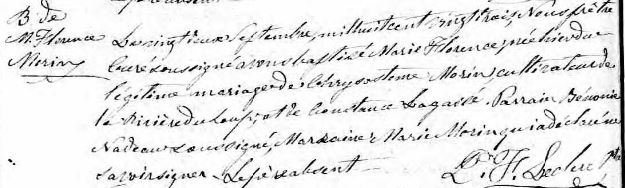 B de
M. Florence
Morin
Le vingt deux Septembre, mil huit cent vingt trois, Nous prêtre
Curé soussigné avons baptisé Marie Florence, née hier du
légitime mariage de Chrysostome Morin cultivateur de
la Rivière du Loup, et de Constance Lagassé. Parrain Bénonie
Nadeau soussigné, Marraine Marie Morin qui a déclaré ne
savoir signer. Le père absent
L. F. Leclerc Ptre